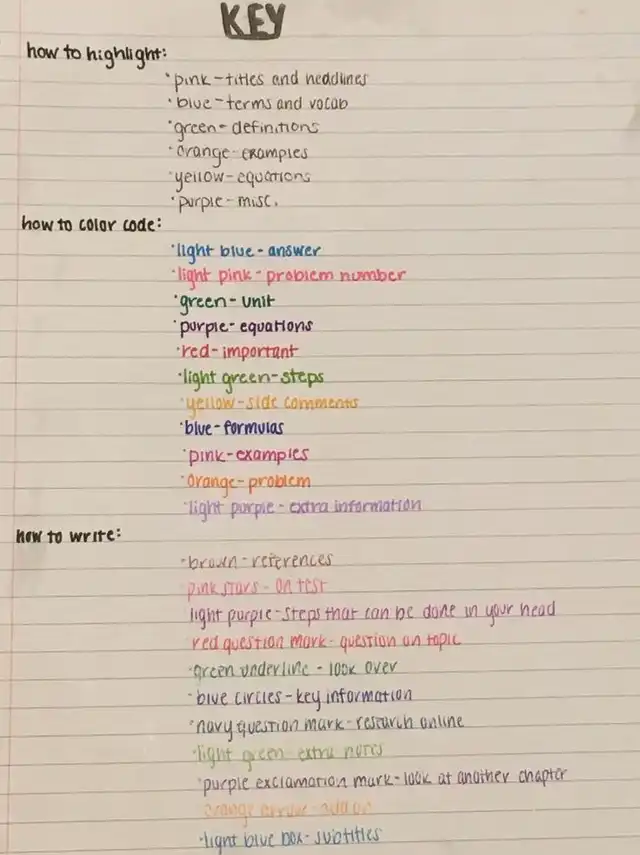 KEY
how to highlight:
·pink-titles and headlines
·blue-terms and vocab
·green-definitions
·orange-examples
·yellow-equations
·purple-misc.
how to color code:
·light blue-answer
·light pink-problem number
·green-unit
·purple-equations
·red-important
·light green-steps
·yellow-side comments
·blue-formulas
·pink-examples
·orange-problem
·light purple-extra information
how to write:
·brown-references
pink stars-on test
light purple-steps that can be done in your head
red question mark-question on topic
·green underline-look over
·blue circles-key information
·navy question mark-research online
·light green-extra notes
·purple exclamation mark-look at another chapter
·orange arrow-add on
·light blue box-subtitles